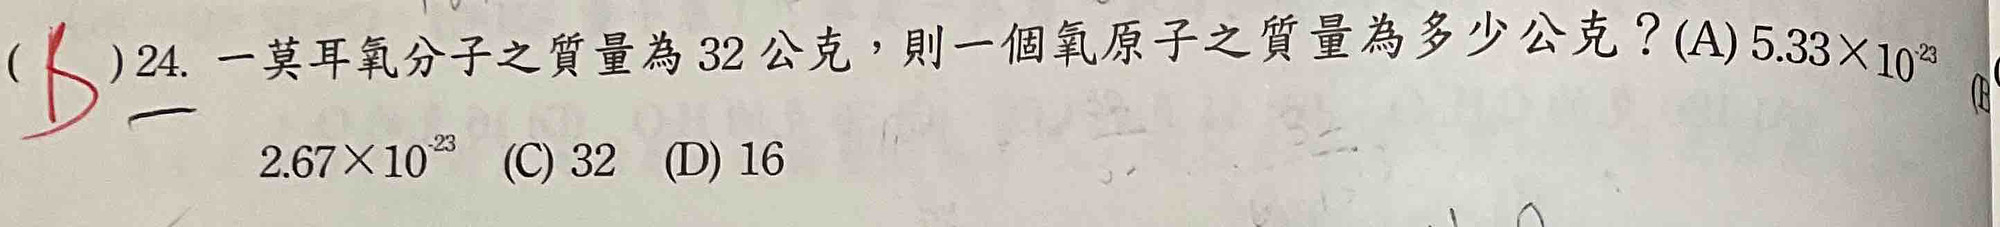 ( B )24. 一莫耳氧分子之質量為 32 公克，則一個氧原子之質量為多少公克？(A) 5.33×10⁻²³ (B
2.67×10⁻²³ (C) 32 (D) 16